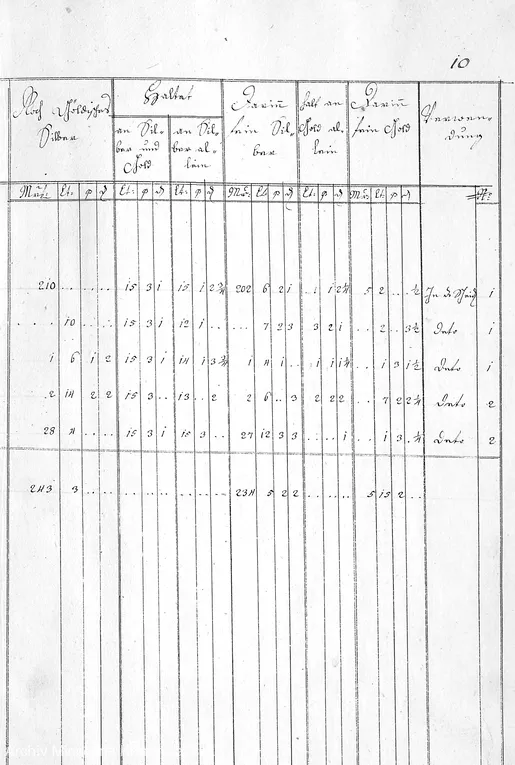 10
Noch Göldisches Silber
Haltet
an Silber und Gold
an Silber allein
Darin fein Silber
halt an Gold allein
Darin fein Gold
Verwendung
Mrk: Lt: q d Lt: q d Lt: q d Mr: Lt q d Lt: q d Mr: Lt: q d №:
210 . . . . . . 15 3 1 15 1 2¾ 202 6 2 1 . 1 1 2¼ 5 2 . . ½ In de Scheid 1
. . . 10 . . . . 15 3 1 12 1 . . . . 7 2 3 3 2 1 . . 2 . 3½ Deto 1
1 6 1 2 15 3 1 14 1 3¾ 1 4 1 . . 1 1 1¼ . . 1 3 1½ Deto 1
2 14 2 2 15 3 . . 13 . . 2 2 6 . . 3 2 2 2 . . 7 2 2¼ Deto 2
28 4 . . . . 15 3 1 15 3 . . 27 12 3 3 . . . 1 . . 1 3 . ¼ Deto 2
243 3 . . . . . . . . . . . . . . . 234 5 2 2 . . . . . 5 15 2 . .
Archiv